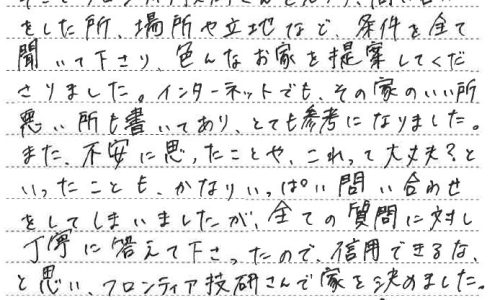 をした所、場所や立地など、条件を全て
聞いて下さり、色んなお家を提案してくだ
さりました。インターネットでも、その家のいい所
悪い所も書いてあり、とても参考になりました。
また、不安に思ったことや、これって大丈夫?と
いったことも、かなりいっぱい問い合わせ
をしてしまいましたが、全ての質問に対し
丁寧に答えて下さったので、信用できるな、
と思い、フロンティア技研さんで家を決めました。